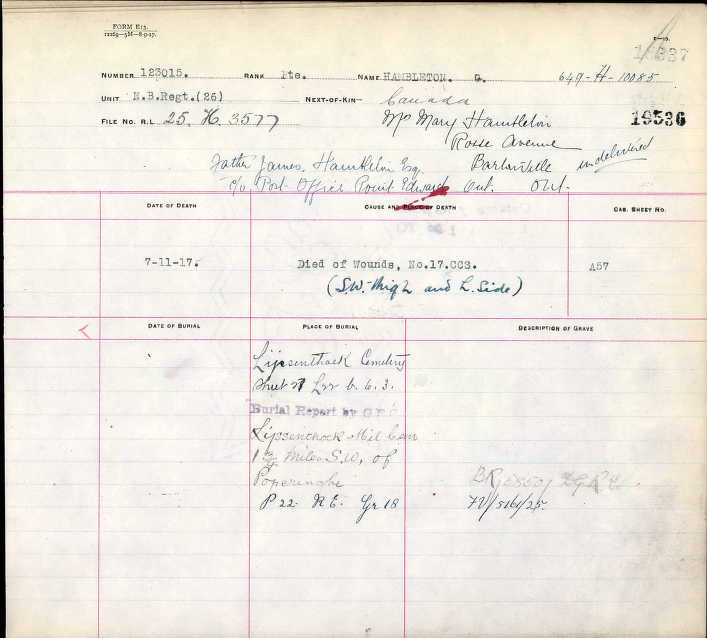 FORM E13.
11269—5M—8-9-17.
NUMBER 123015. RANK Pte. NAME HAMBLETON. G. 649-H-10085
UNIT N.B.Regt.(26) NEXT-OF-KIN— Canada
FILE NO. R.L. 25. H. 3577 Mrs Mary Hambleton 19536
Rosse Avenue
Father James Hambleton Esq. undelivered
c/o Post Office Point Edward Ont. Ont.
DATE OF DEATH CAUSE AND PLACE OF DEATH CAS. SHEET NO.
7-11-17. Died of Wounds, No.17.CCS. A57
(S.W. Thigh and L. Side)
DATE OF BURIAL PLACE OF BURIAL DESCRIPTION OF GRAVE
Lijssenthoek Cemetery
Sheet 27 L22 b. 6. 3.
Burial Report by G
Lijssenthoek Mil Cem
miles S.W. of
Poperinghe
P 22 R E. Gr 18